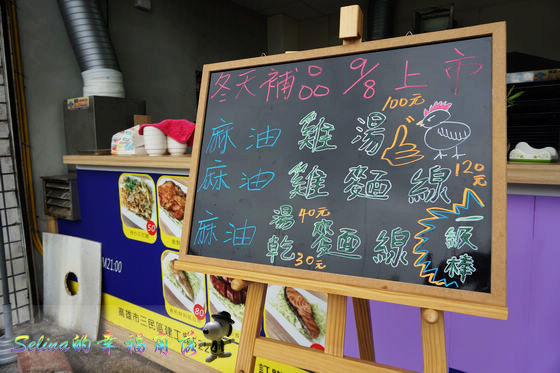 冬天補品 9/8 上市
麻油 雞湯 100元
麻油 雞麵線 120元
麻油 湯 40元 乾 30元 麵線
一級棒
50
80
M21:00
高雄市三民區建工
Selina的幸福周波